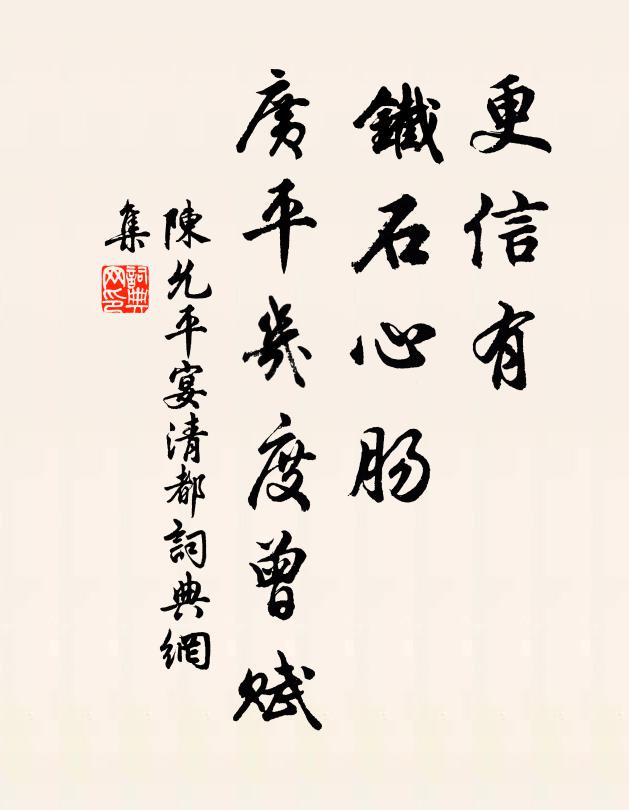 更信有
鐵石心肠
廣平幾度曾赋
陳允平宴清都詞典網
集
詞典网印